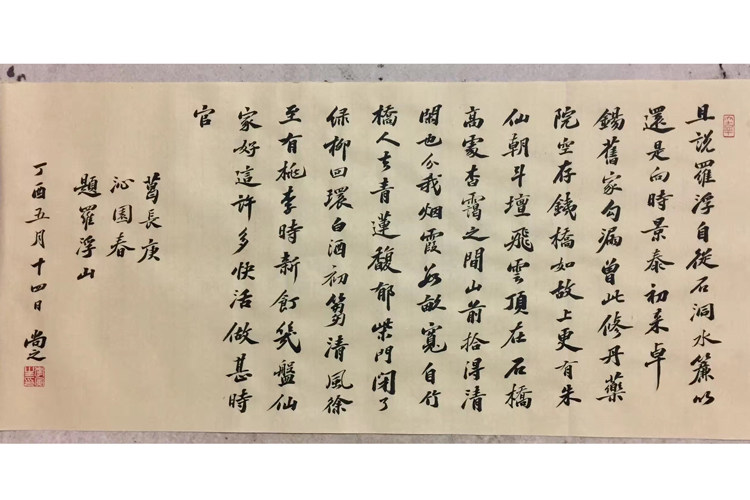 且説羅浮自從石洞水簾以
還是向時景泰初来卓
錫舊家勾漏曾此修丹藥
院空存鐵橋如故上更有朱
仙朝斗壇飛雲頂在石橋
高處杳靄之間山前拾得清
閑也分我烟霞數畝寬自竹
橋人去青蓮馥郁柴門閉了
绿柳回環白酒初篘清風徐
至有桃李時新飣幾盤仙
家好這許多快活做甚時
官
葛長庚
沁園春
題羅浮山
丁酉五月十四日 尚之